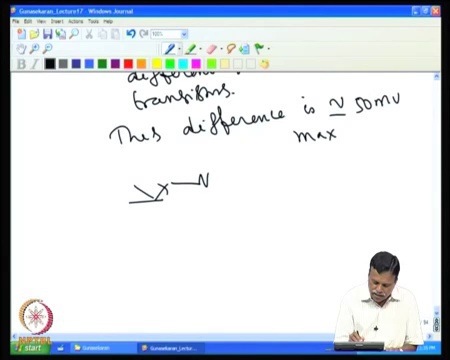 Gunasekaran_Lecture17 - Windows Journal
File Edit View Insert Actions Tools Help
100%
transitions.
This difference is ~ 50mv
max
N
start
Gunasekaran
Gunasekaran_Lectu...